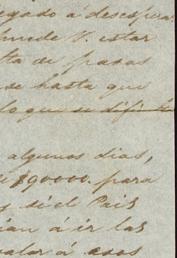 egado á desespera
puede V. estar
ta de frases
se hasta que
lo que se difi
algunos dias,
$90000. para
y si el Pais
ian á ir las
valor á esos